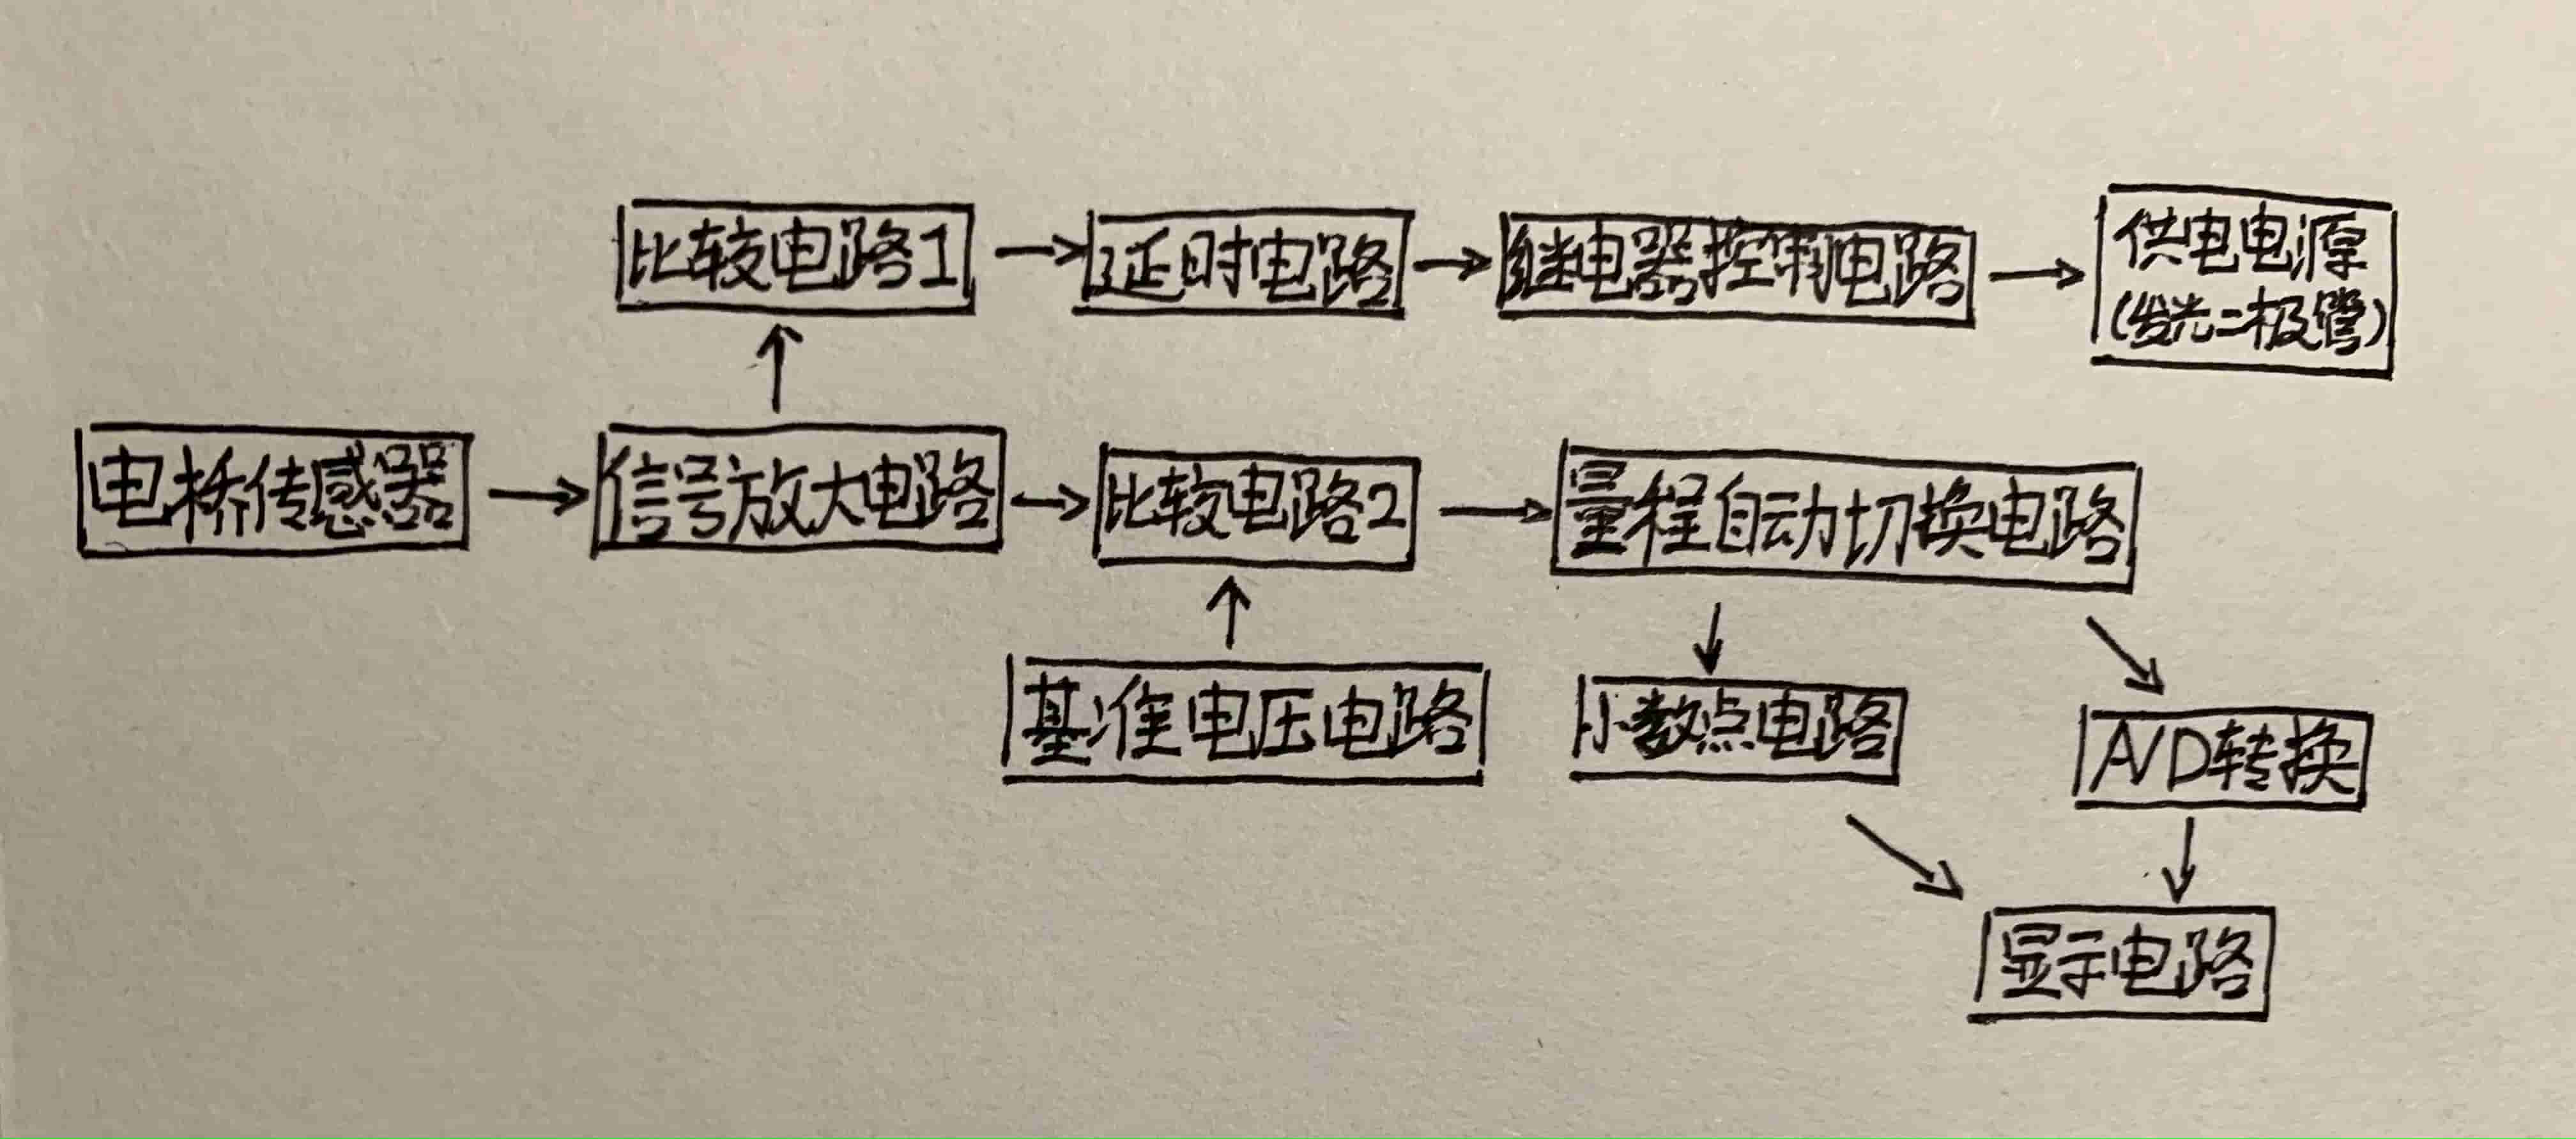 比较电路1
延时电路
继电器控制电路
供电电源
(发光二极管)
电桥传感器
信号放大电路
比较电路2
量程自动切换电路
基准电压电路
小数点电路
A/D转换
显示电路